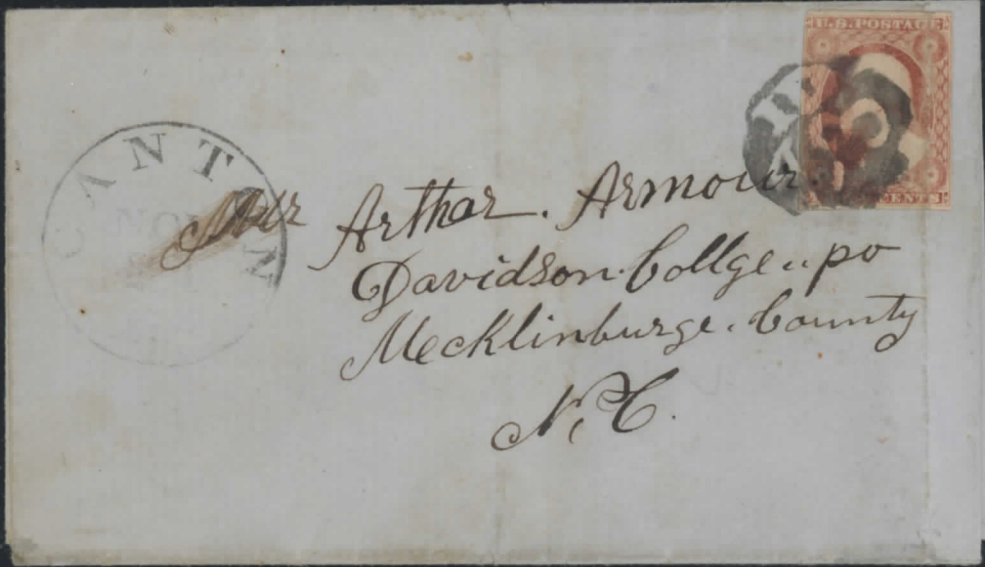 U.S. POSTAGE
CENTS
PAID
CANTON
NOV
Mr Arthar. Armour.
Davidson Collge po
Mecklinburge. County
N.C.